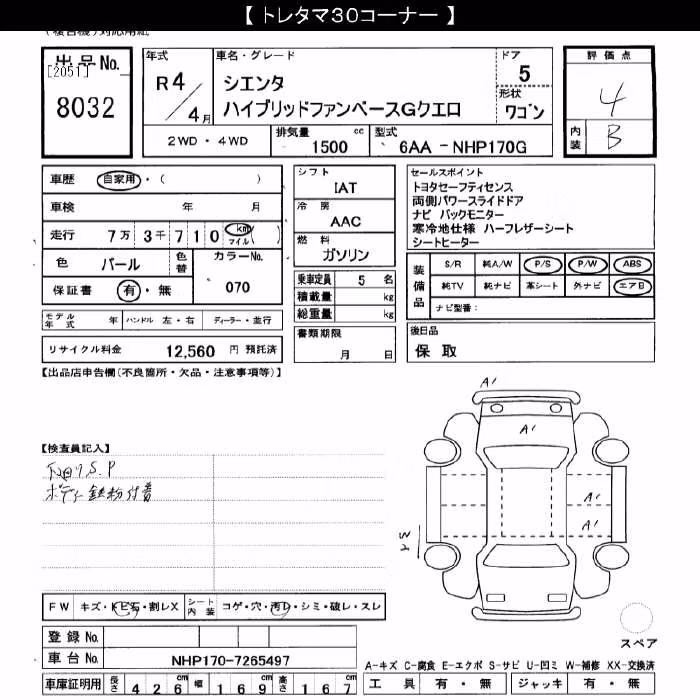 【 トレタマ30コーナー 】
(複合機)対応用紙
出品No. [2051] 8032
年式 R4/4月
車名・グレード シエンタ
ハイブリッドファンベースGクエロ
ドア 5
形状 ワゴン
評価点 4
内装 B
2WD・4WD
排気量 1500 cc
型式 6AA - NHP170G
車歴 自家用・( )
車検 年 月
走行 7万3千710 km マイル ( )
色 パール 色替 カラーNo. 070
保証書 有・無
モデル年式 年 ハンドル 左・右 ディーラー・並行
リサイクル料金 12,560 円 預託済
シフト IAT
冷房 AAC
燃料 ガソリン
乗車定員 5 名
積載量 kg
総重量 kg
書類期限 月 日
セールスポイント
トヨタセーフティセンス
両側パワースライドドア
ナビ バックモニター
寒冷地仕様 ハーフレザーシート
シートヒーター
装備品 S/R 純A/W P/S P/W ABS
純TV 純ナビ 革シート 外ナビ エアB
ナビ型番:
後日品
保 取
【出品店申告欄(不良箇所・欠品・注意事項等)】
【検査員記入】
S.P
ボディ鉄粉付着
A'
A'
A'
A'
FW キズ・トビ石・割レX シート内装 コゲ・穴・汚レ・シミ・破レ・スレ
登録 No.
車台 No. NHP170-7265497
車庫証明用 長さ 426 幅 169 高さ 167
スペア
A-キズ C-腐食 E-エクボ S-サビ U-凹ミ W-補修 XX-交換済
工具 有・無 ジャッキ 有・無